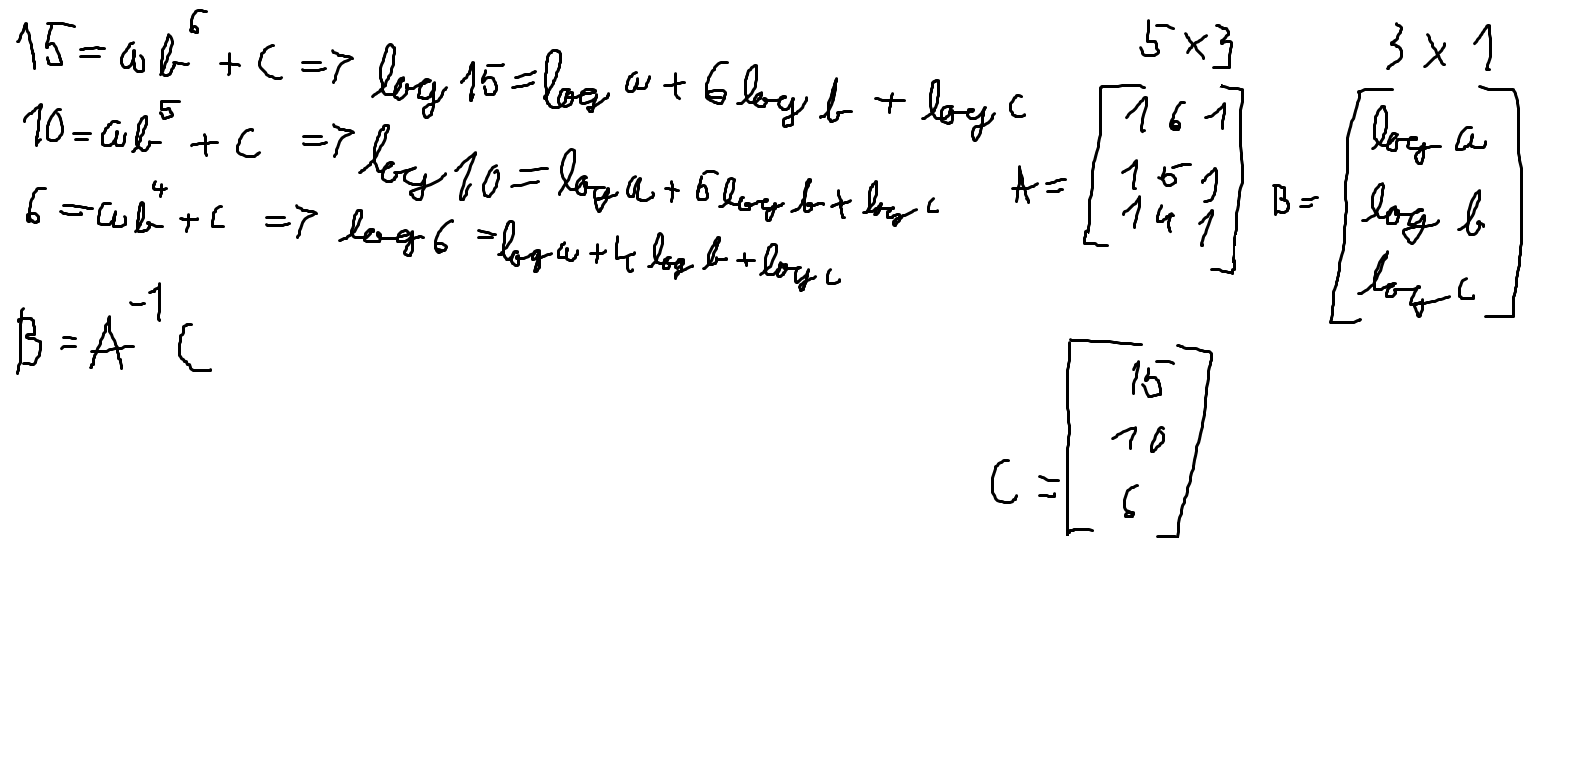 15 = ab^6 + c => log 15 = log a + 6 log b + log c
10 = ab^5 + c => log 10 = log a + 5 log b + log c
6 = ab^4 + c => log 6 = log a + 4 log b + log c
B = A^-1 C
5 x 3
A = [1 6 1
1 5 1
1 4 1]
3 x 1
B = [log a
log b
log c]
C = [15
10
6]